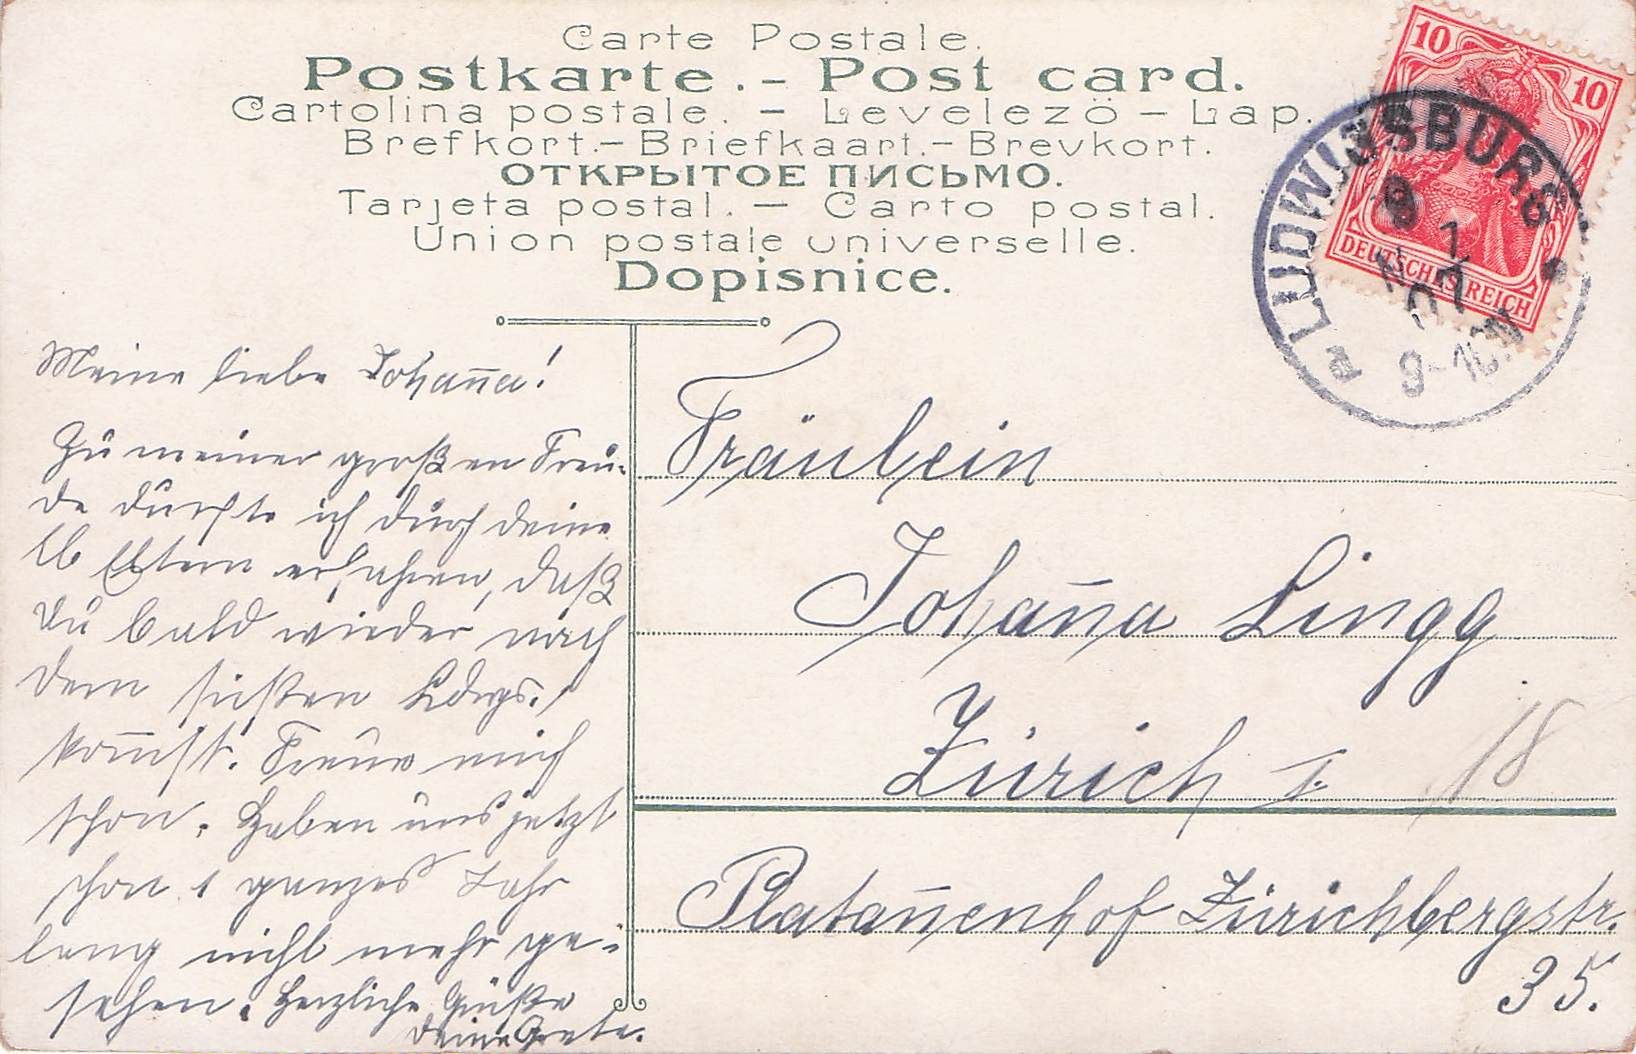 Carte Postale.
Postkarte.- Post card.
Cartolina postale. - Levelezö - Lap.
Brefkort.- Briefkaart.- Brevkort.
ОТКРЫТОЕ ПИСЬМО.
Tarjeta postal. - Carto postal.
Union postale universelle.
Dopisnice.
10 10
DEUTSCHES REICH
LUDWIGSBURG
9 1
N 07
9-10
Meine liebe Johan̄a!
Zu meiner großen Freu-
de durfte ich durch deine
lb Eltern erfahren, daß
Du bald wieder nach
dem süßen Ldwgs.
kom̄st. Freue mich
schon. Haben uns jetzt
schon 1 ganzes Jahr
lang nicht mehr ge-
sehen. Herzliche Grüße
deine Grete.
Fräulein
Johan̄a Lingg
Zürich 1. 18
Platan̄enhof Zürichbergstr.
35.